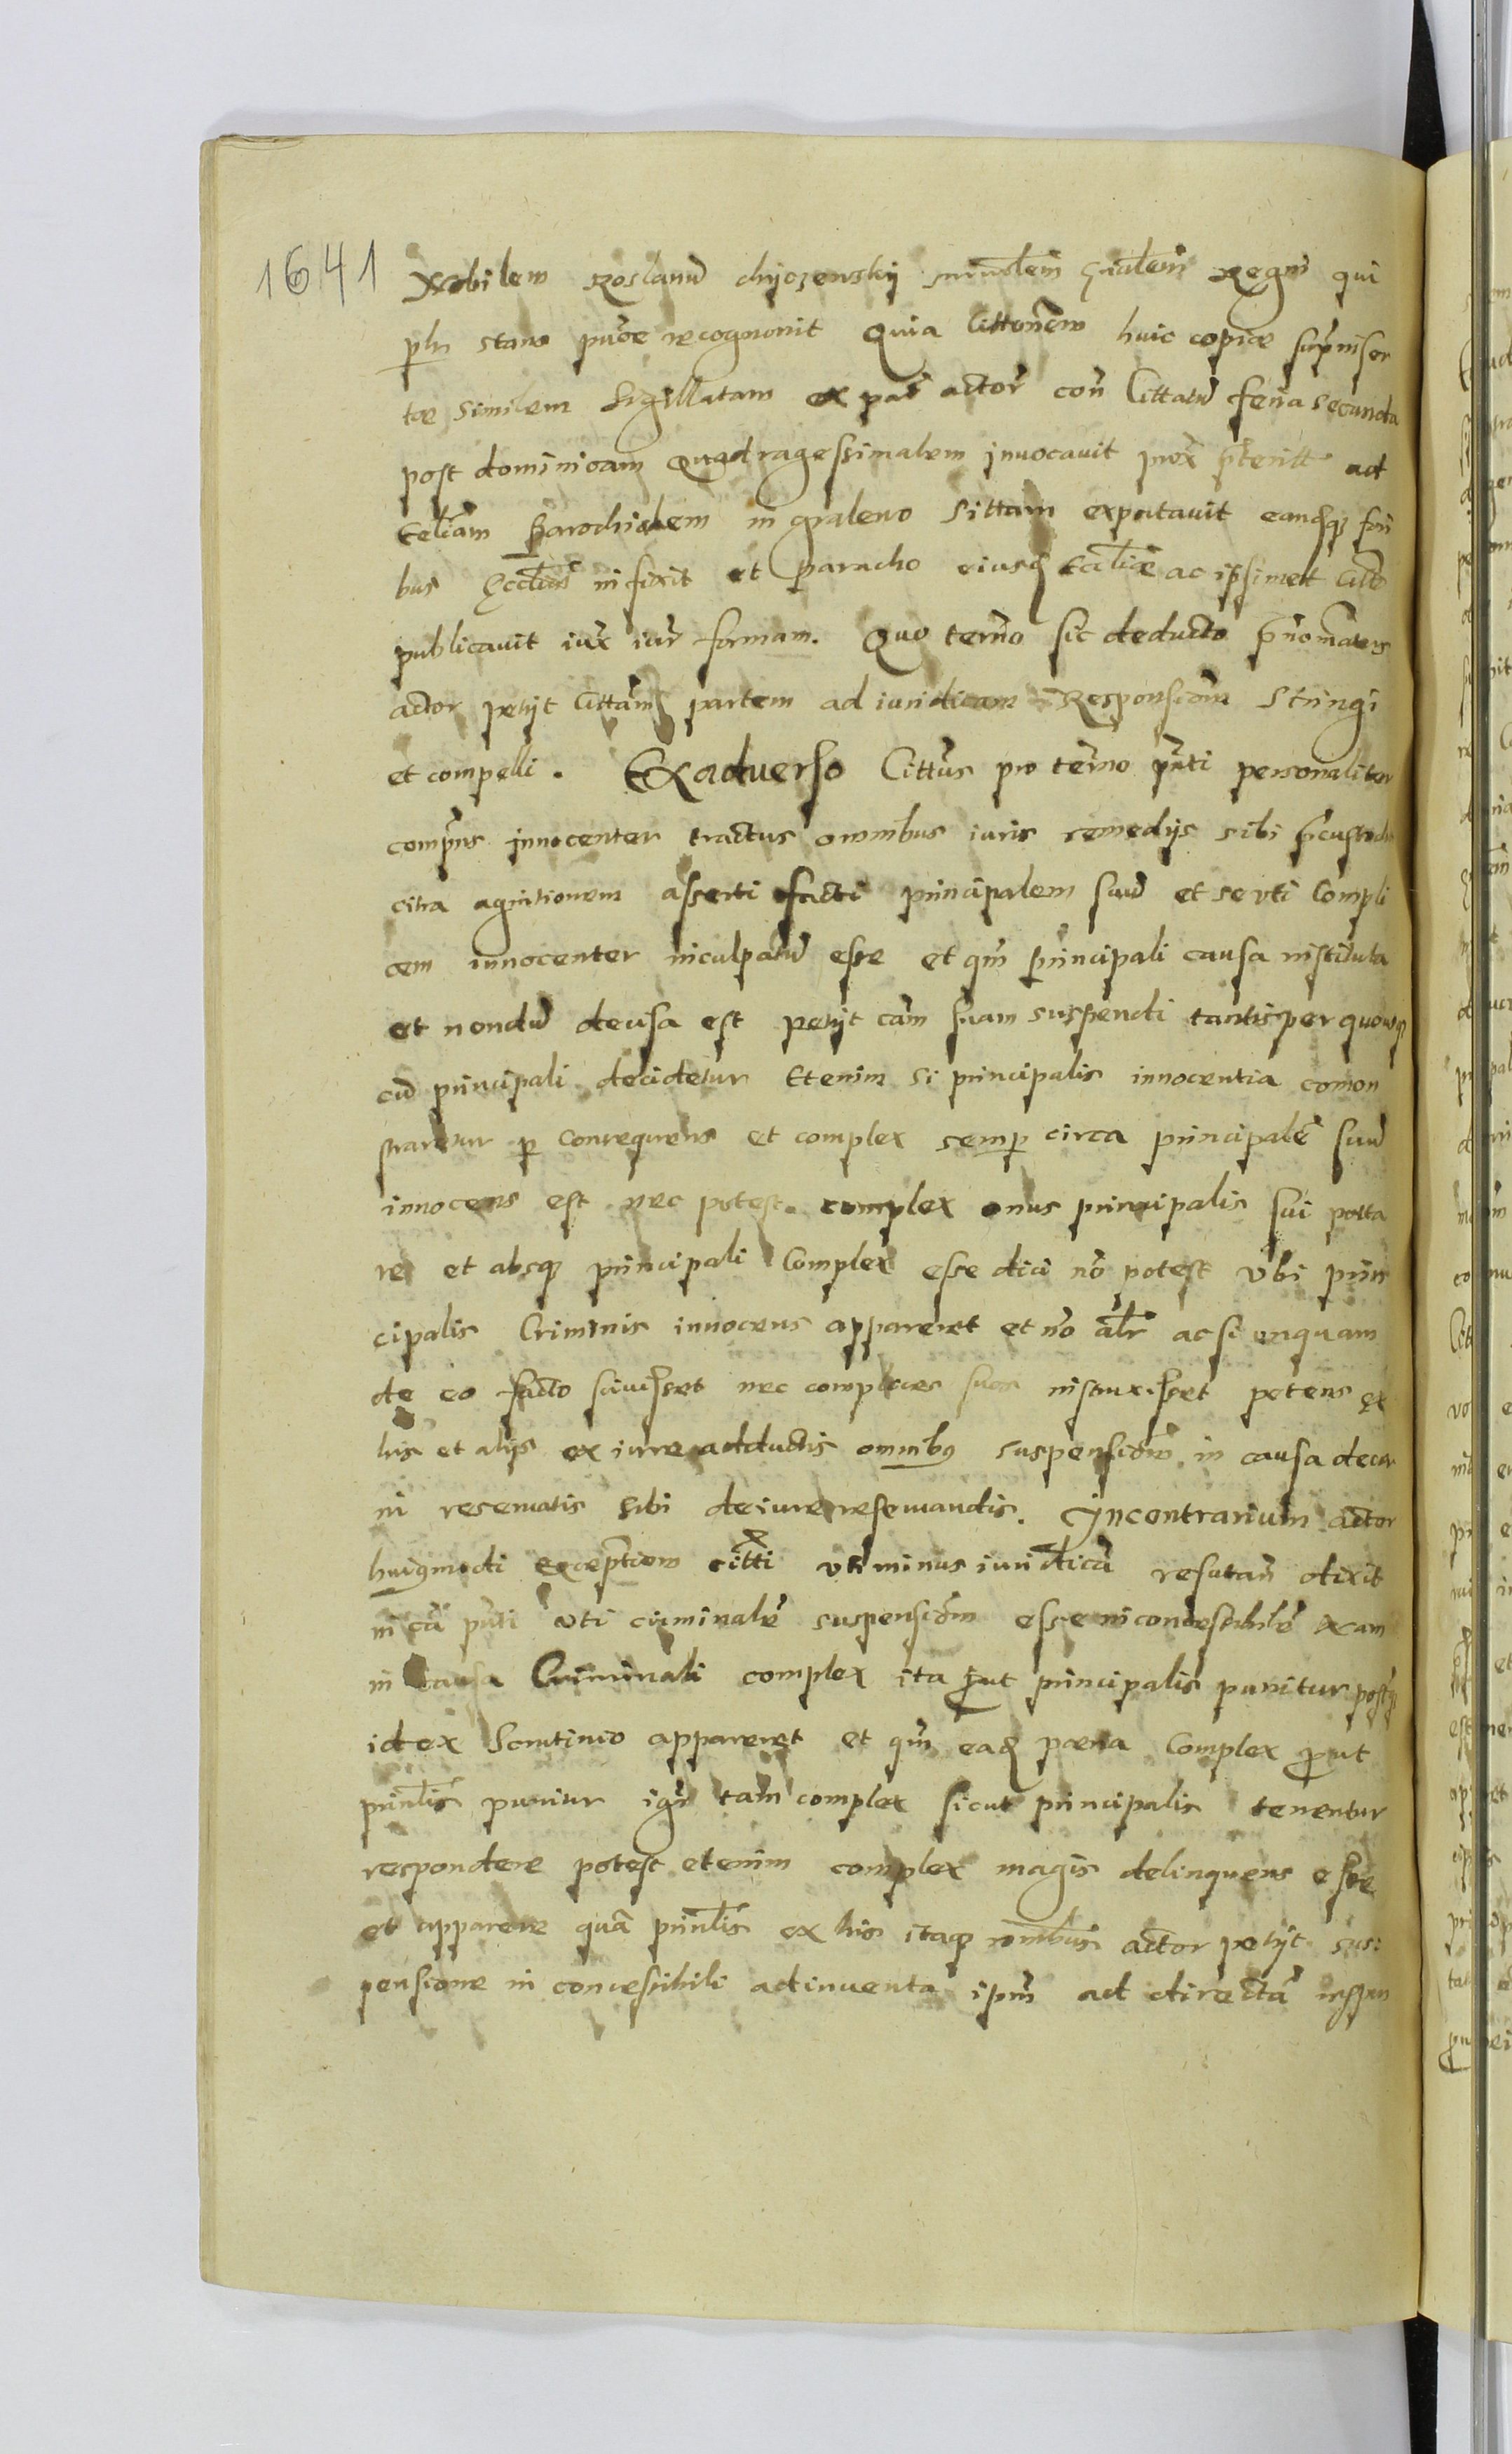 1641
Nobilem Roslanũ chyozenskij ministlem Gnalem Regni qui
plr stans pnõe recognouit Quia Cittonem huic copiæ suprinser
tæ similem Sigillatam ex par actor con Cittatũ feria secunda
post dominicam Quadragessimalem inuocauit prox pterit ad
Eccliam Parochialem in graleuo sittam exportauit eandqz fori
bus Eccliæ infixit et paracho eiusd Eccliæ ac ipsimet Citto
publicauit iux iur formam. Quo termo sic deducto pnomatus
actor petijt Cittam partem ad iuridicam Responsiom stringi
et compelli. Ex aduerso Cittus pro termo pnti personaliter
comprns innocenter tractus omnibus iuris remedijs sibi pcustod
citra agnitionem asserti facti principalem suũ et se vti Compli
cem innocenter inculpatũ esse et qm principali causa instituta
et nondũ decisa est petijt cam suam suspendi tantisper quousqz
cũ principali decidetur Etenim si principalis innocentia comon
straretur p consequens et complex semp circa principalẽ suũ
innocens est nec potest complex onus principalis sui porta
re et absqz principali Complex esse dici nõ potest vbi prin
cipalis Criminis innocens appareret et nõ alr ac si unquam
de eo facto sciuisset nec complices suos instruxisset petens ex
his et alijs ex iure adductis omnibq suspensiom in causa decer
ni reseruatis sibi de iure reseruandis. In contrarium actor
huiqmodi exceptiom citti vti minus iuridicã refutan dixit
in cã pnti vti criminalẽ suspensiom esse inconcessibilẽ
in causa Criminali complex ita put principalis punitur postq
id ex Scrutinio appareret et qm ead pœna Complex prout
prinlis punitur igr tam complex sicut principalis tenentur
respondere potest etenim complex magis delinquens esse
et apparere quã prinlis ex his itaqz omnibus actor petijt sus:
pensione in concessibili adinuenta ipm ad directã respon